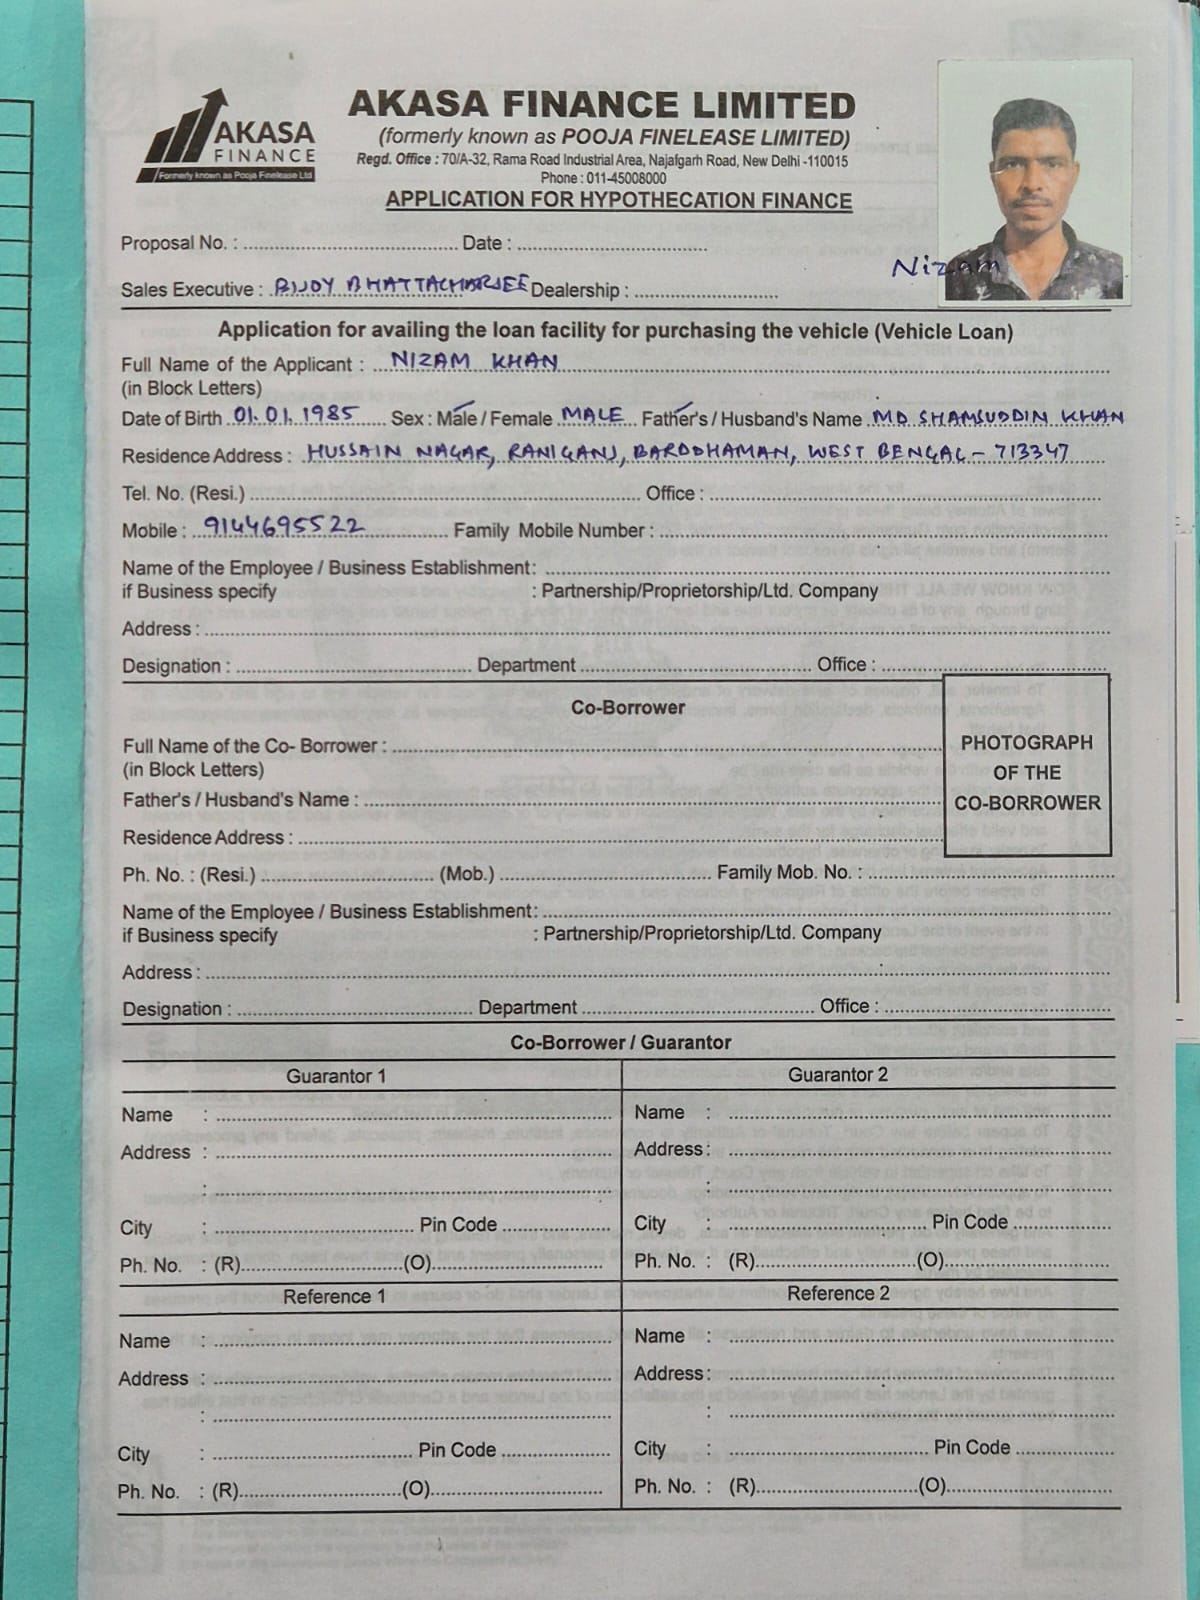 AKASA
FINANCE
Formerly known as Pooja Finelease Ltd
AKASA FINANCE LIMITED
(formerly known as POOJA FINELEASE LIMITED)
Regd. Office : 70/A-32, Rama Road Industrial Area, Najafgarh Road, New Delhi -110015
Phone : 011-45008000
APPLICATION FOR HYPOTHECATION FINANCE
Proposal No. : ........ Date : ........
Nizam
Sales Executive : BIJOY BHATTACHARJEE Dealership : ........
Application for availing the loan facility for purchasing the vehicle (Vehicle Loan)
Full Name of the Applicant : NIZAM KHAN
(in Block Letters)
Date of Birth 01.01.1985 Sex : Male / Female MALE Father's / Husband's Name MD SHAMSUDDIN KHAN
Residence Address : HUSSAIN NAGAR, RANIGANJ, BARDDHAMAN, WEST BENGAL - 713347
Tel. No. (Resi.) ........ Office : ........
Mobile : 9144695522 Family Mobile Number : ........
Name of the Employee / Business Establishment: ........
if Business specify : Partnership/Proprietorship/Ltd. Company
Address : ........
Designation : ........ Department ........ Office : ........
Co-Borrower
PHOTOGRAPH
OF THE
CO-BORROWER
Full Name of the Co- Borrower : ........
(in Block Letters)
Father's / Husband's Name : ........
Residence Address : ........
Ph. No. : (Resi.) ........ (Mob.) ........ Family Mob. No. : ........
Name of the Employee / Business Establishment: ........
if Business specify : Partnership/Proprietorship/Ltd. Company
Address : ........
Designation : ........ Department ........ Office : ........
Co-Borrower / Guarantor
Guarantor 1 Guarantor 2
Name : ........ Name : ........
Address : ........ Address : ........
: ........ : ........
City : ........ Pin Code ........ City : ........ Pin Code ........
Ph. No. : (R)........(O)........ Ph. No. : (R)........(O)........
Reference 1 Reference 2
Name : ........ Name : ........
Address : ........ Address : ........
: ........ : ........
City : ........ Pin Code ........ City : ........ Pin Code ........
Ph. No. : (R)........(O)........ Ph. No. : (R)........(O)........